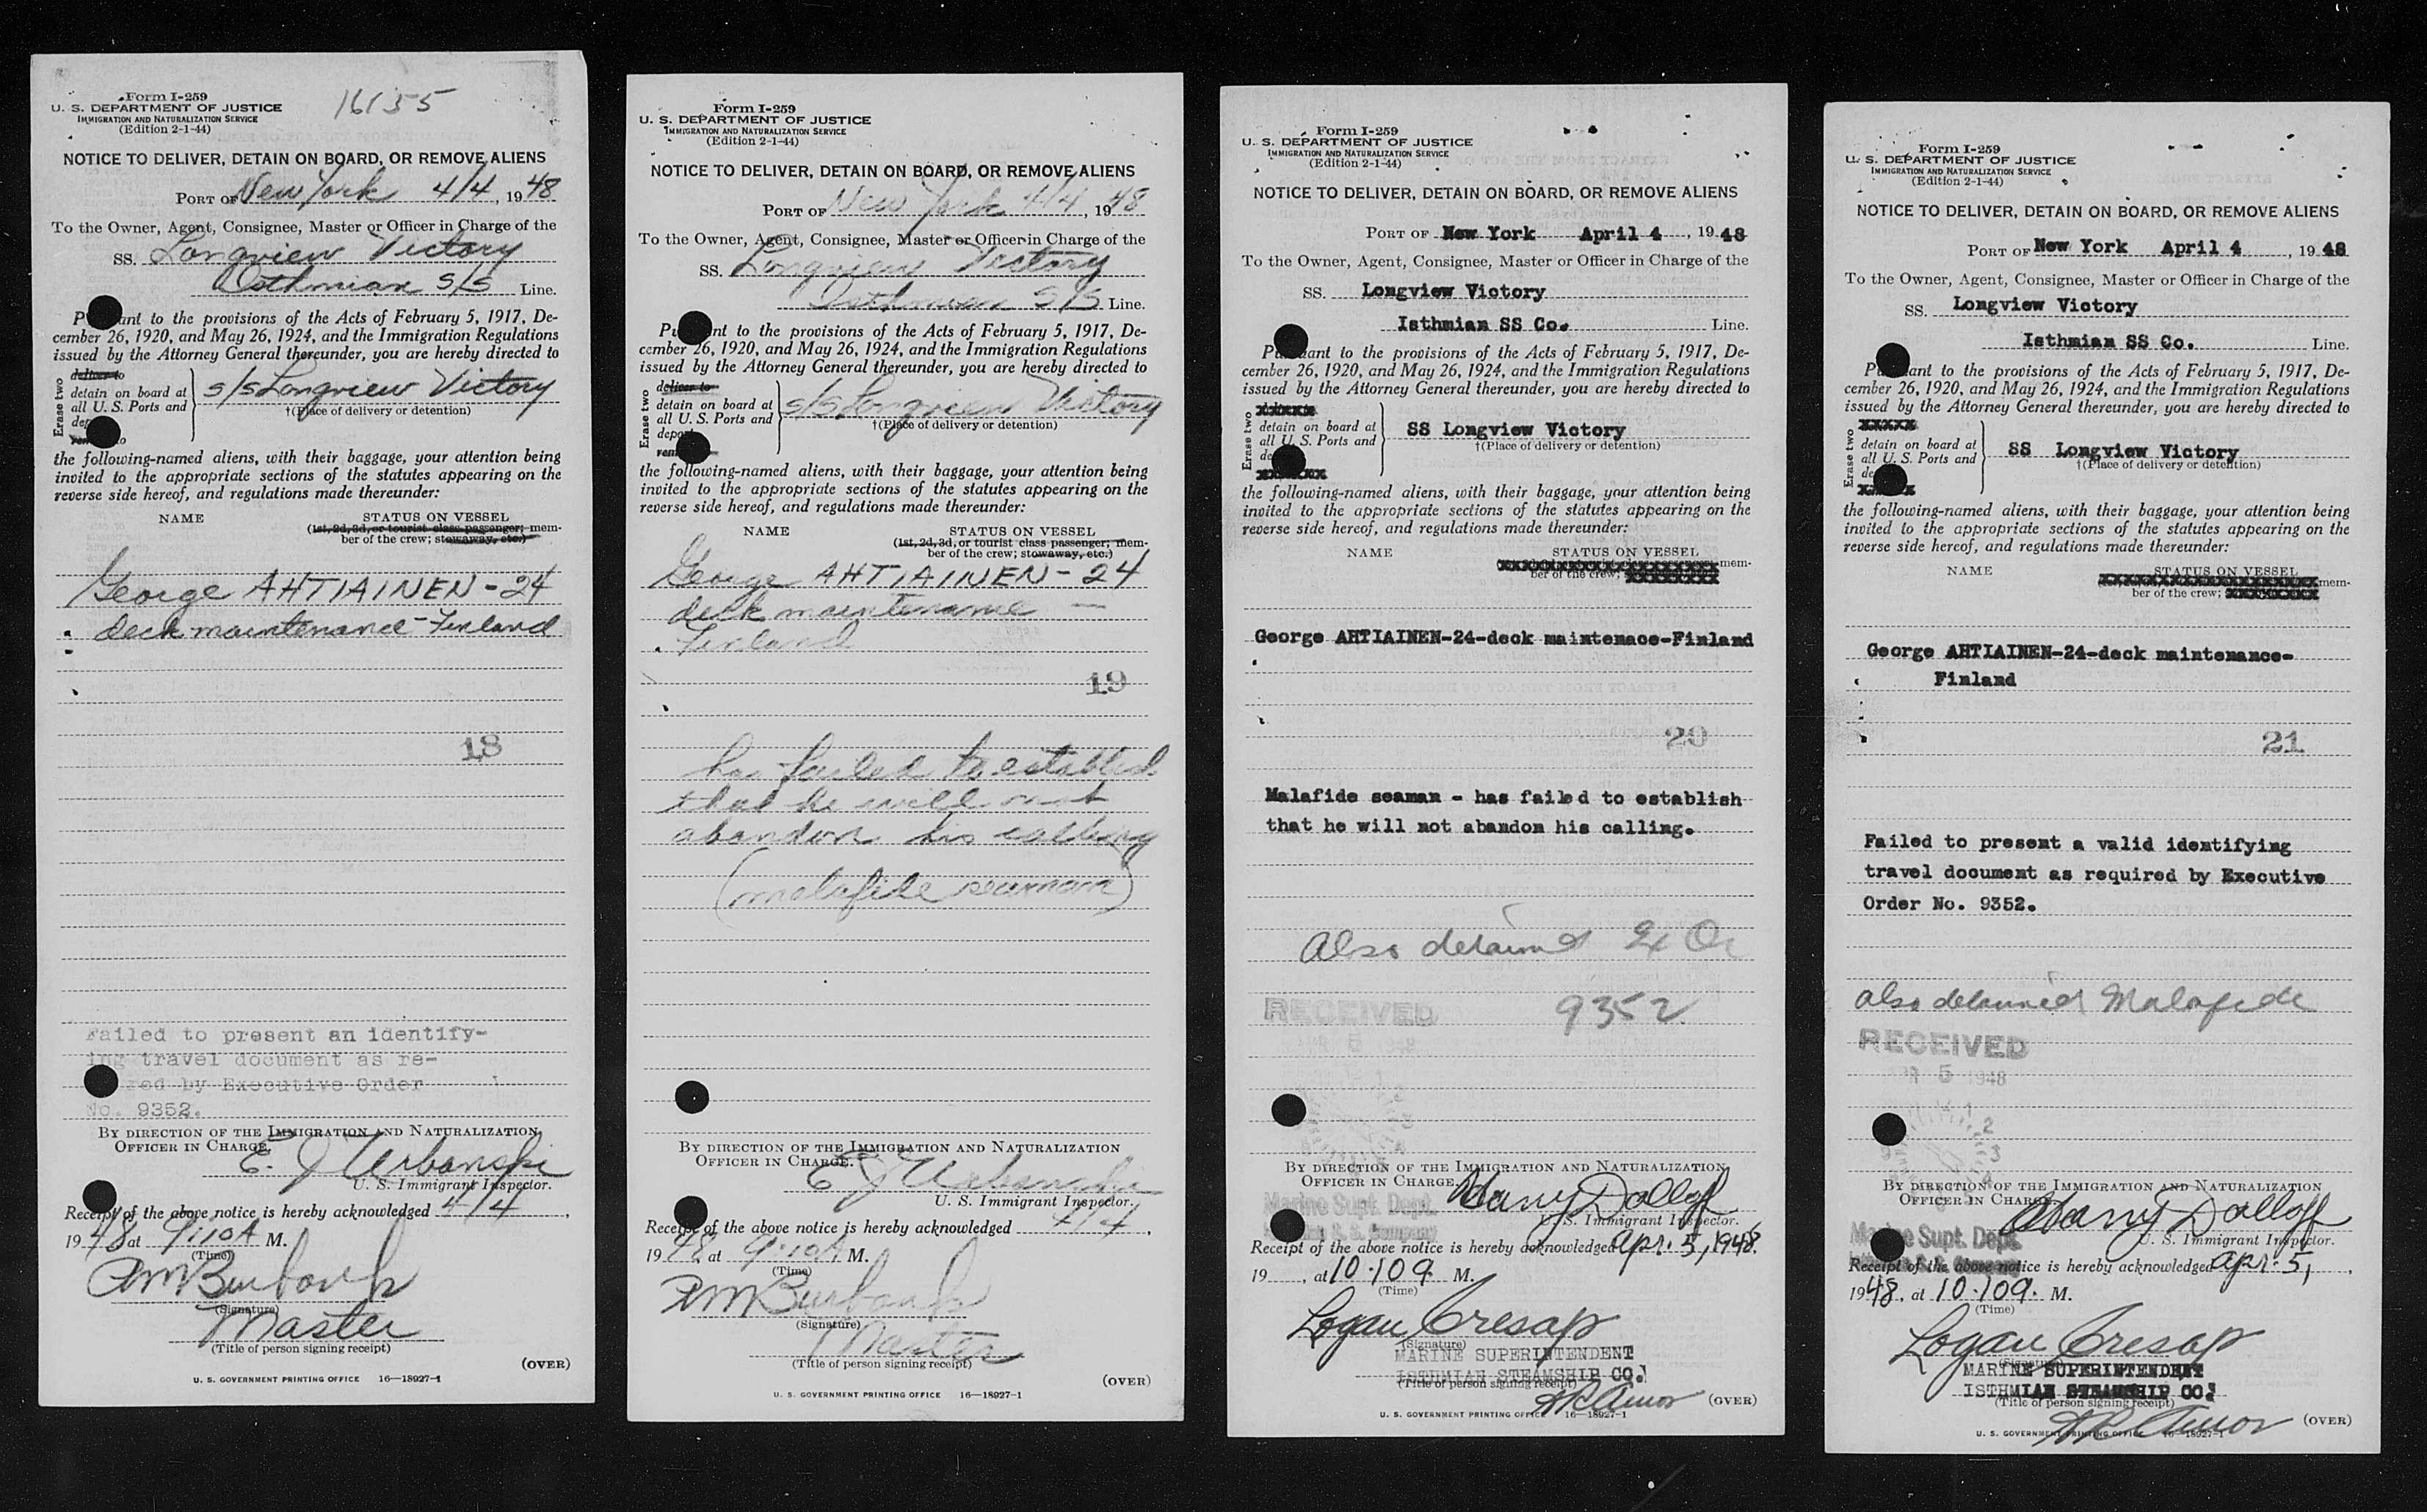 Form I-259
16135
U. S. DEPARTMENT OF JUSTICE
IMMIGRATION AND NATURALIZATION SERVICE
(Edition 2-1-44)
NOTICE TO DELIVER, DETAIN ON BOARD, OR REMOVE ALIENS
PORT OF New York 4/4, 1948
To the Owner, Agent, Consignee, Master or Officer in Charge of the
SS. Longview Victory
Isthmian S/S Line.
ant to the provisions of the Acts of February 5, 1917, De-
cember 26, 1920, and May 26, 1924, and the Immigration Regulations
issued by the Attorney General thereunder, you are hereby directed to
Erase two
deliver to
detain on board at
all U. S. Ports and
s/s Longview Victory
†(Place of delivery or detention)
the following-named aliens, with their baggage, your attention being
invited to the appropriate sections of the statutes appearing on the
reverse side hereof, and regulations made thereunder:
NAME STATUS ON VESSEL
(1st, 2d, 3d, or tourist class passenger; mem-
ber of the crew; stowaway, etc.)
George AHTIAINEN - 24
deck maintenance - Finland
18
Failed to present an identify-
ing travel document as re-
red by Executive Order
No. 9352.
BY DIRECTION OF THE IMMIGRATION AND NATURALIZATION
OFFICER IN CHARGE.
E. J Urbanski
U. S. Immigrant Inspector.
Receipt of the above notice is hereby acknowledged 4/4,
1948 at 9:10A M.
(Time)
RM Burbank
(Signature)
Master
(Title of person signing receipt)
(OVER)
U. S. GOVERNMENT PRINTING OFFICE 16—18927-1
Form I-259
U. S. DEPARTMENT OF JUSTICE
IMMIGRATION AND NATURALIZATION SERVICE
(Edition 2-1-44)
NOTICE TO DELIVER, DETAIN ON BOARD, OR REMOVE ALIENS
PORT OF New York 4/4, 1948
To the Owner, Agent, Consignee, Master or Officer in Charge of the
SS. Longview Victory
Isthmian S/S Line.
Pu nt to the provisions of the Acts of February 5, 1917, De-
cember 26, 1920, and May 26, 1924, and the Immigration Regulations
issued by the Attorney General thereunder, you are hereby directed to
Erase two
deliver to
detain on board at
all U. S. Ports and
depor
s/s Longview Victory
†(Place of delivery or detention)
the following-named aliens, with their baggage, your attention being
invited to the appropriate sections of the statutes appearing on the
reverse side hereof, and regulations made thereunder:
NAME STATUS ON VESSEL
(1st, 2d, 3d, or tourist class passenger; mem-
ber of the crew; stowaway, etc.)
George AHTIAINEN - 24
deck maintenance -
Finland
19
has failed to establish
that he will not
abandon his calling
(malafide seaman)
BY DIRECTION OF THE IMMIGRATION AND NATURALIZATION
OFFICER IN CHARGE.
E J Urbanski
U. S. Immigrant Inspector.
Receipt of the above notice is hereby acknowledged 4/4,
1948 at 9:10A M.
(Time)
RM Burbank
(Signature)
Master
(Title of person signing receipt)
(OVER)
U. S. GOVERNMENT PRINTING OFFICE 16—18927-1
Form I-259
U. S. DEPARTMENT OF JUSTICE
IMMIGRATION AND NATURALIZATION SERVICE
(Edition 2-1-44)
NOTICE TO DELIVER, DETAIN ON BOARD, OR REMOVE ALIENS
PORT OF New York April 4, 1948
To the Owner, Agent, Consignee, Master or Officer in Charge of the
SS. Longview Victory
Isthmian SS Co. Line.
Pu ant to the provisions of the Acts of February 5, 1917, De-
cember 26, 1920, and May 26, 1924, and the Immigration Regulations
issued by the Attorney General thereunder, you are hereby directed to
Erase two
detain on board at
all U. S. Ports and
SS Longview Victory
†(Place of delivery or detention)
the following-named aliens, with their baggage, your attention being
invited to the appropriate sections of the statutes appearing on the
reverse side hereof, and regulations made thereunder:
NAME STATUS ON VESSEL
mem-
ber of the crew;
George AHTIAINEN-24-deck maintenace-Finland
20
Malafide seaman - has failed to establish
that he will not abandon his calling.
Also detained Ex Or
9352
RECEIVED
1948
BY DIRECTION OF THE IMMIGRATION AND NATURALIZATION
OFFICER IN CHARGE.
Harry Dolloff
Marine Supt. Dept.
U. S. Immigrant Inspector.
Receipt of the above notice is hereby acknowledged Apr. 5, 1948.
19 , at 10:10a. M.
(Time)
Logan Cresap
(Signature)
MARINE SUPERINTENDENT
ISTHMIAN STEAMSHIP CO.
(Title of person signing receipt)
(OVER)
U. S. GOVERNMENT PRINTING OFFICE 16—18927-1
Form I-259
U. S. DEPARTMENT OF JUSTICE
IMMIGRATION AND NATURALIZATION SERVICE
(Edition 2-1-44)
NOTICE TO DELIVER, DETAIN ON BOARD, OR REMOVE ALIENS
PORT OF New York April 4, 1948
To the Owner, Agent, Consignee, Master or Officer in Charge of the
SS. Longview Victory
Isthmian SS Co. Line.
Pu ant to the provisions of the Acts of February 5, 1917, De-
cember 26, 1920, and May 26, 1924, and the Immigration Regulations
issued by the Attorney General thereunder, you are hereby directed to
Erase two
detain on board at
all U. S. Ports and
SS Longview Victory
†(Place of delivery or detention)
the following-named aliens, with their baggage, your attention being
invited to the appropriate sections of the statutes appearing on the
reverse side hereof, and regulations made thereunder:
NAME STATUS ON VESSEL
mem-
ber of the crew;
George AHTIAINEN-24-deck maintenance-
Finland
21
Failed to present a valid identifying
travel document as required by Executive
Order No. 9352.
also detained Malafide
RECEIVED
APR 5 1948
BY DIRECTION OF THE IMMIGRATION AND NATURALIZATION
OFFICER IN CHARGE.
Harry Dolloff
Marine Supt. Dept.
U. S. Immigrant Inspector.
Receipt of the above notice is hereby acknowledged Apr. 5,
1948, at 10:10a. M.
(Time)
Logan Cresap
(Signature)
MARINE SUPERINTENDENT
ISTHMIAN STEAMSHIP CO.
(Title of person signing receipt)
(OVER)
U. S. GOVERNMENT PRINTING OFFICE 16—18927-1